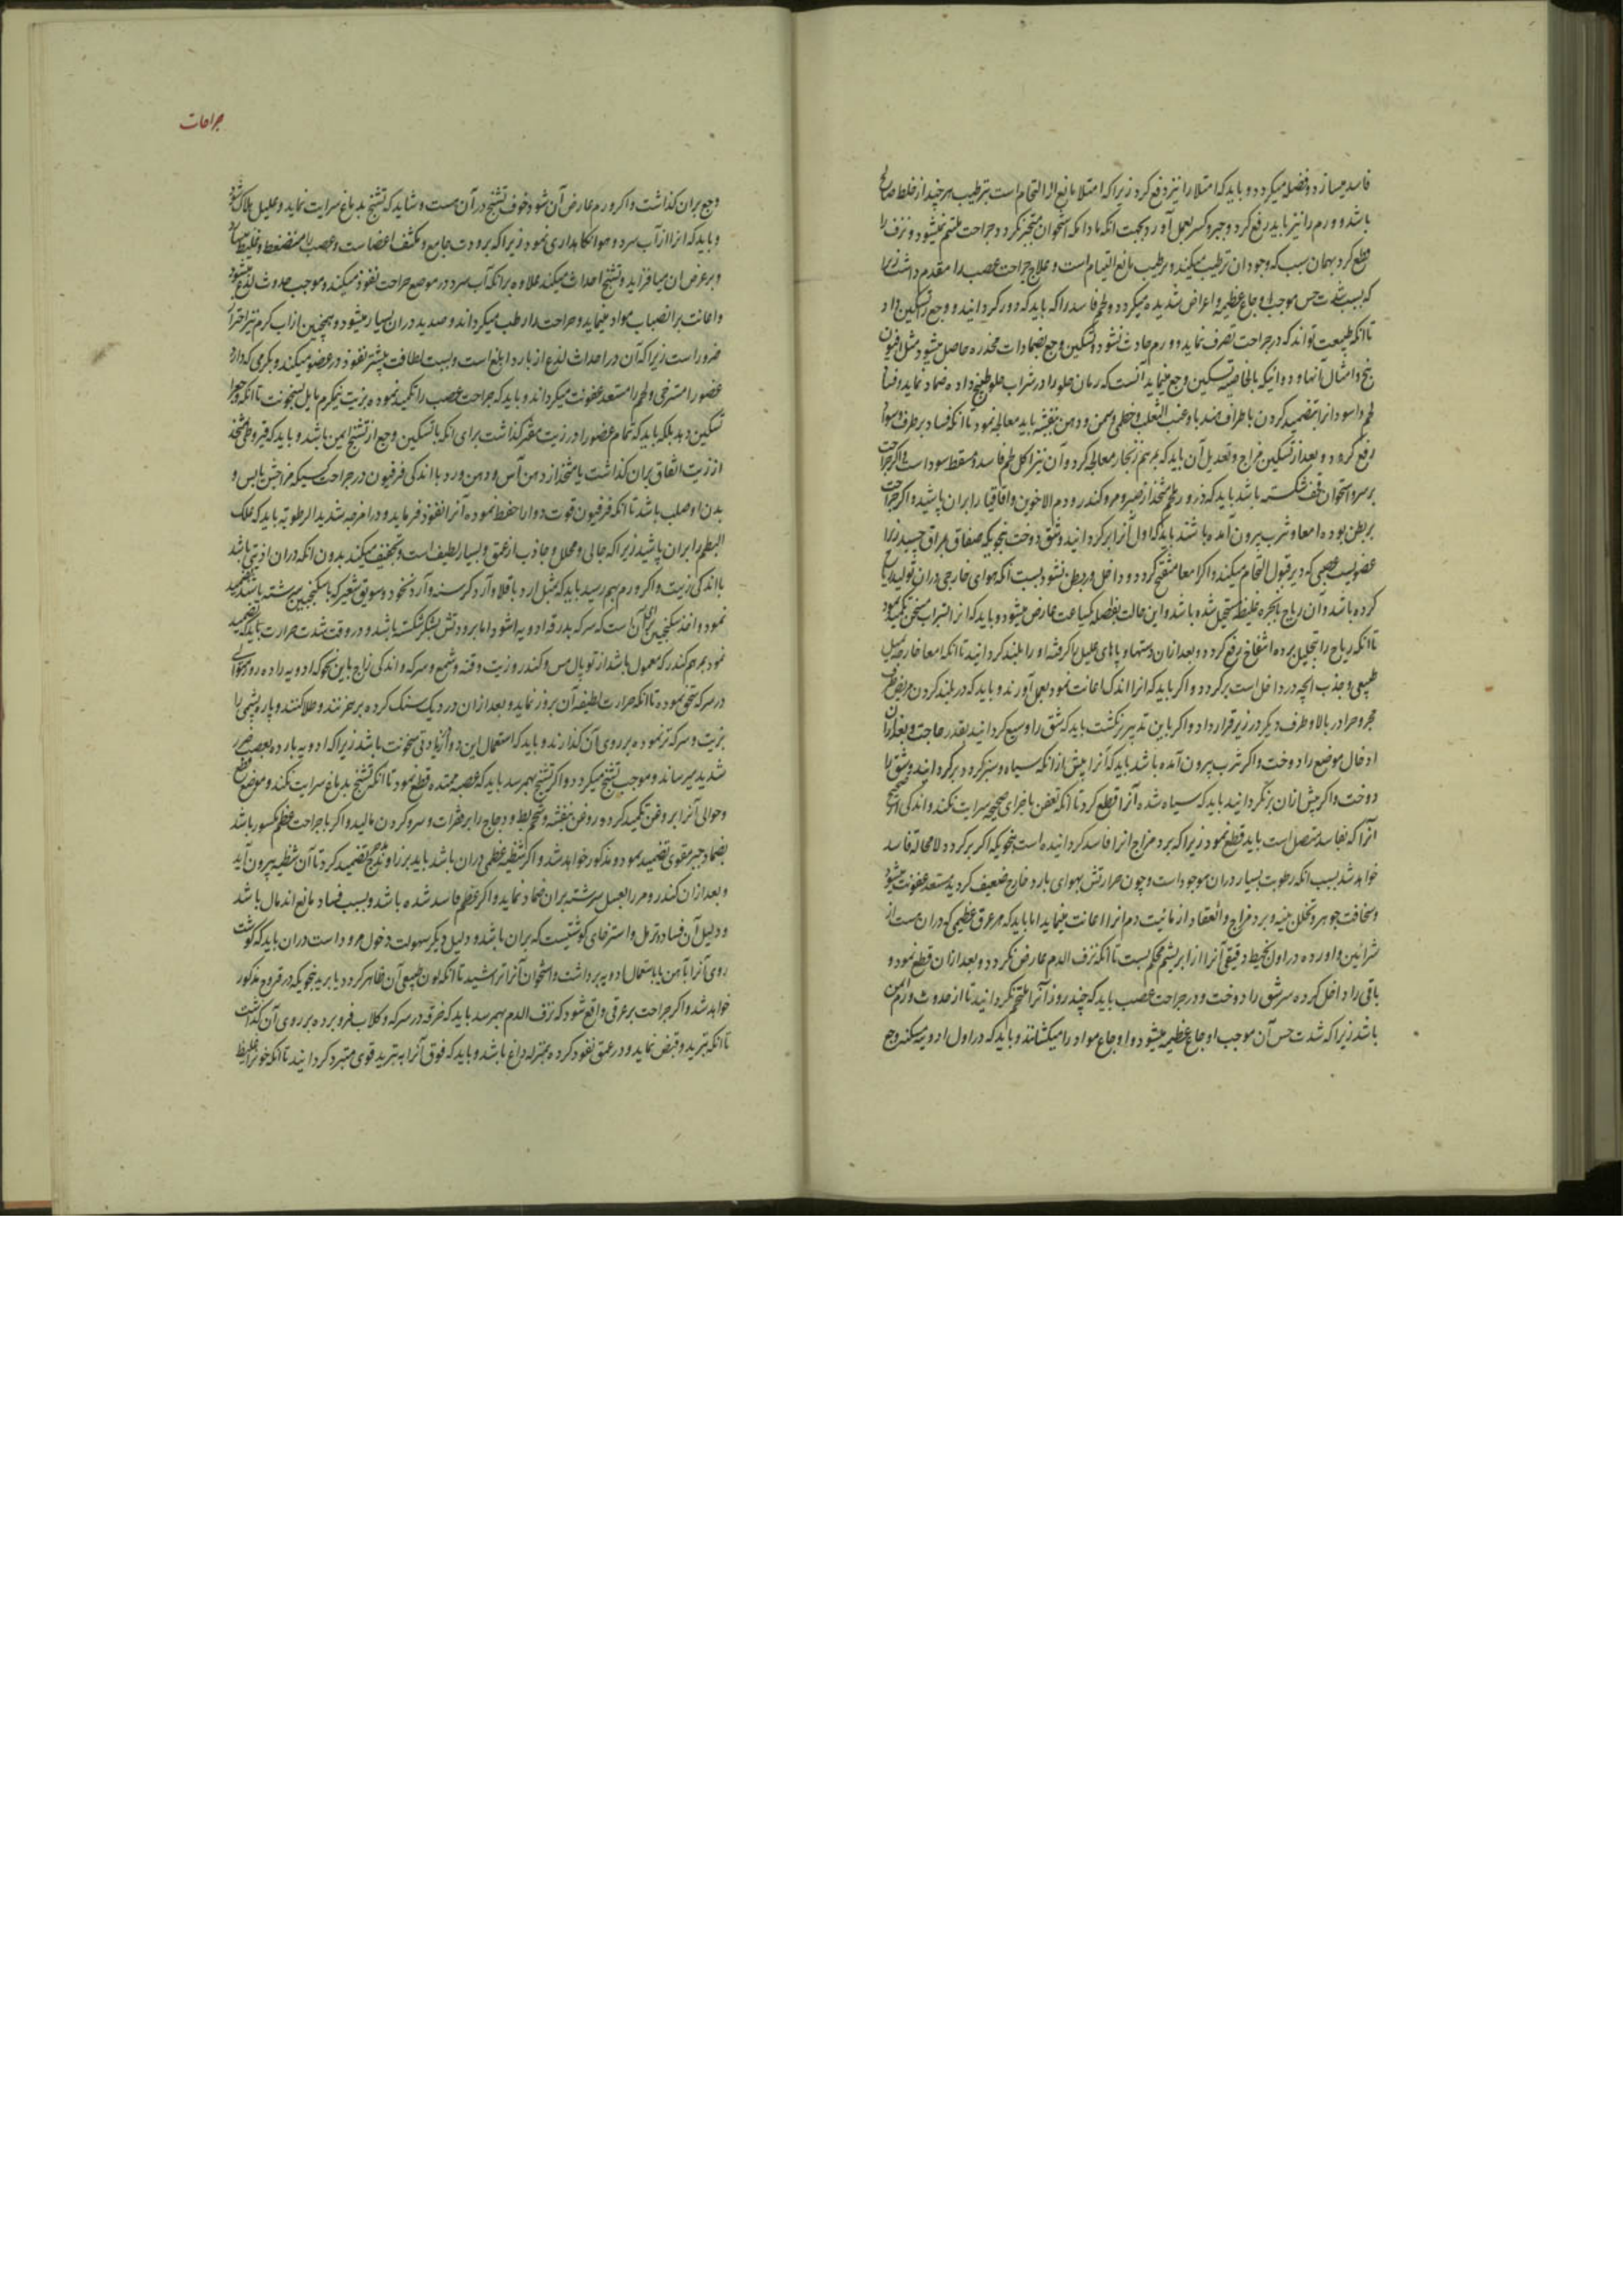 فاسد میسازد و فضل میگردد و باید که امتلا را نیز دفع کرد زیرا که امتلا مانع از التحام است بترطیب هر چند از خلط صالح
باشد و ورم را نیز باید رفع کرد و جبر و کسر بعمل آورد بجهت آنکه مادامکه استخوان منجبر نکردد جراحت ملتحم نمیشود و نزف را
قطع کرد بهمان سبب که وجود آن ترطیب میکند و ترطیب مانع التیام است و علاج جراحت عصب را مقدم داشت زیرا
که بسبب شدت حس موجب اوجاع عظیمه و اعراض شدیده میکردد و لحم فاسد را که باید که دور کردانید و وجع را تسکین داد
تا آنکه طبیعت تواند که در جراحت تصرف نماید و ورم حادث نشود و تسکین وجع بضمادات مخدره حاصل میشود مثل افیون
بنج و امثال آنها و دوائیکه بالخاصیه تسکین وجع مینماید آنست که رمان حلو را در شراب حلو طبیخ داده ضماد نماید و فساد
لحم و اسوداد آنرا بتضمید کردن باطراف هندبا و عنب الثعلب و خطمی و سمن و دهن بنفشه باید معالجه نمود تا آنکه فساد برطرف و سواد
رفع کردد و بعد از تسکین مزاج و تعدیل آن باید که بمرهم زنجار معالجه کرد و آن نیز اکل لحم فاسد و مسقط سواد است و اکر جراحت
بر سر و استخوان قحف شکسته باشد باید که ذرور ملحم متخذ از صبر و مر و کندر و دم الاخوین و اقاقیا را بران پاشید و اکر جراحت
بر بطن بوده امعا و ثرب بیرون آمده باشند باید که اول آنرا برکردانید و شق دوخت بنحویکه صفاق بمراق چسبد زیرا
عضویست عصبی که دیر قبول التحام میکند و اکر امعا منتفخ کردد و داخل در بطن نشود بسبب آنکه هوای خارجی دران تولید ریاح
کرده باشد و آن ریاح بابخره غلیظه مستحیل شده باشد و این حالت بفصله یکساعت عارض میشود و باید که آنرا بشراب مسخن تکمید نمود
تا آنکه ریاح را بتحلیل برده انتفاخ رفع کردد و بعد ازان دستها و پاهای علیل را کرفته او را بلند کردانید تا آنکه امعا خارجه بمیل
طبیعی و جذب آنچه در داخل است برکردد و اکر باید که آنرا اندک اعانت نمود بعمل آورند و باید که در بلند کردن مریض طرف
مجروح را در بالا و طرف دیکر در زیر قرار داد و اکر باین تدبیر برنکشت باید که شق را وسیع کردانید بقدر حاجت و بعد ازان
ادخال موضع را دوخت و اکر ثرب بیرون آمده باشد باید که آنرا پیش از آنکه سیاه و سبز کردد برکردانید و شق را
دوخت و اکر پیش ازان برنکردانید باید که سیاه شده آنرا قطع کرد تا آنکه تعفن باجزای صحیحه سرایت نکند و اندکی از صحیح
آنرا که بفاسد متصل است باید قطع نمود زیرا که برد مزاج آنرا فاسد کردانیده است بنحویکه اکر برکردد لامحاله فاسد
خواهد شد بسبب آنکه رطوبت بسیار دران موجود است و چون حرارتش بهوای بارد خارج ضعیف کردید مستعد عفونت میشود
و سخافت جوهر و تخلل بنیه و برد مزاج و انعقاد از مائیت دم آنرا اعانت مینماید اما باید که هر عرق عظیمی که دران هست از
شرائین و اورده در اول بخیط دقیقی آنرا از ابریشم محکم بست تا آنکه نزف الدم عارض نکردد و بعد ازان قطع نمود و
باقی را داخل کرده سر شق را دوخت و در جراحت عصب باید که چند روز آنرا ملتحم نکردانید تا از حدوث ورم ایمن
باشد زیرا که شدت حس آن موجب اوجاع عظیمه میشود و اوجاع مواد را میکشانند و باید که در اول ادویه مسکنه وجع
جراحات
وجع بران کذاشت و اکر ورم عارض آن شود خوف تشنج در آن هست و شاید که تشنج بدماغ سرایت نماید و علیل هلاک شود
و باید که آنرا از آب سرد و هوا نکاهداری نمود زیرا که برودت جامع و مکثف اعضا ست و عصب را منضغط و غلیظ میسازد
و بر عرض آن میافزاید و تشنج احداث میکند علاوه بر آنکه آب سرد در موضع جراحت نفوذ میکند و موجب حدوث لذع میشود
و اعانت بر انصباب مواد مینماید و جراحت را رطب میکرداند و صدید دران بسیار میشود و همچنین از آب کرم نیز احتراز
ضرور است زیرا که آن در احداث لذع از بارد ابلغ است و بسبب لطافت بیشتر نفوذ در عضو میکند و بکرمی که دارد
عضو را مسترخی و لحم را مستعد عفونت میکرداند و باید که جراحت عصب را تکمید نموده بزیت نیمکرم مایل بسخونت تا آنکه وجع را
تسکین دهد بلکه باید که تمام عضو را در زیت مفتر کذاشت برای آنکه با تسکین وجع از تشنج ایمن باشد و باید که قیروطی متخذ
از زیت انفاق بران کذاشت یا متخذ از دهن آس و دهن ورد با اندکی فرفیون در جراحت کسیکه مزاجش یابس و
بدن او صلب باشد تا آنکه فرفیون قوت دوا را حفظ نموده آنرا نفوذ فرماید و در امزجه شدید الرطوبه باید که علک
البطم را بران پاشید زیرا که جالی و محلل و جاذب از عمق و بسیار لطیف است و تجفیف میکند بدون آنکه دران اذیتی باشد
با اندکی زیت و اکر ورم بهم رسید باید که بمثل آرد باقلا و آرد کرسنه و آرد نخود و سویق شعیر که با سکنجبین سرشته باشند تضمید
نمود و اخذ سکنجبین برای آن است که سرکه بدرقه ادویه شود اما برودتش بشکر شکسته باشد و در وقت شدت حرارت باید که تضمید
نمود بمرهم کندر که معمول باشد از توبال مس و کندر و زیت و قنه و شمع و سرکه و اندکی زاج باین نحو که ادویه را ده روز متوالی
در سرکه سحق نموده تا آنکه حرارت لطیفه آن بروز نماید و بعد ازان در دیک سنک کرده بر هم زنند و طلا کنند و پارچه پشمی را
بزیت و سرکه تر نموده بر روی آن کذارند و باید که استعمال این دوا بزیادتی سخونت باشد زیرا که ادویه بارده بعصب ضرر
شدید میرساند و موجب تشنج میکردد و اکر تشنج بهم رسد باید که عصبه ممتده قطع نمود تا آنکه تشنج بدماغ سرایت نکند و موضع قطع
و حوالی آنرا بروغن تکمید کرد و روغن بنفشه و شحم بط و دجاج را بر فقرات و سر و کردن مالید و اکر با جراحت عظم مکسور باشد
بضماد جبر مقوی تضمید نمود و مذکور خواهد شد و اکر شظیه عظمی دران باشد باید بزراوند مدحرج تضمید کرد تا آن شظیه بیرون آید
و بعد ازان کندر و مر را بعسل سرشته بران ضماد نماید و اکر عظم فاسد شده باشد و بسبب فساد مانع اندمال باشد
و دلیل آن فساد و ترهل و استرخای کوشتیست که بران باشد و دلیل دیکر سهولت دخول مرود است دران باید که کوشت
روی آنرا بآهن یا باستعمال ادویه برداشت و استخوان آنرا تراشید تا آنکه لون طبیعی آن ظاهر کردد یا برید بنحویکه در قروح مذکور
خواهد شد و اکر جراحت بر عرقی واقع شود که نزف الدم بهم رسد باید که خرقه در سرکه و کلاب فرو برده بر روی آن کذاشت
تا آنکه تبرید و قبض نماید و در عمق نفوذ کرده بمنزله داغ باشد و باید که فوق آنرا به تبرید قوی متبرد کردانید تا آنکه خون را غلیظ